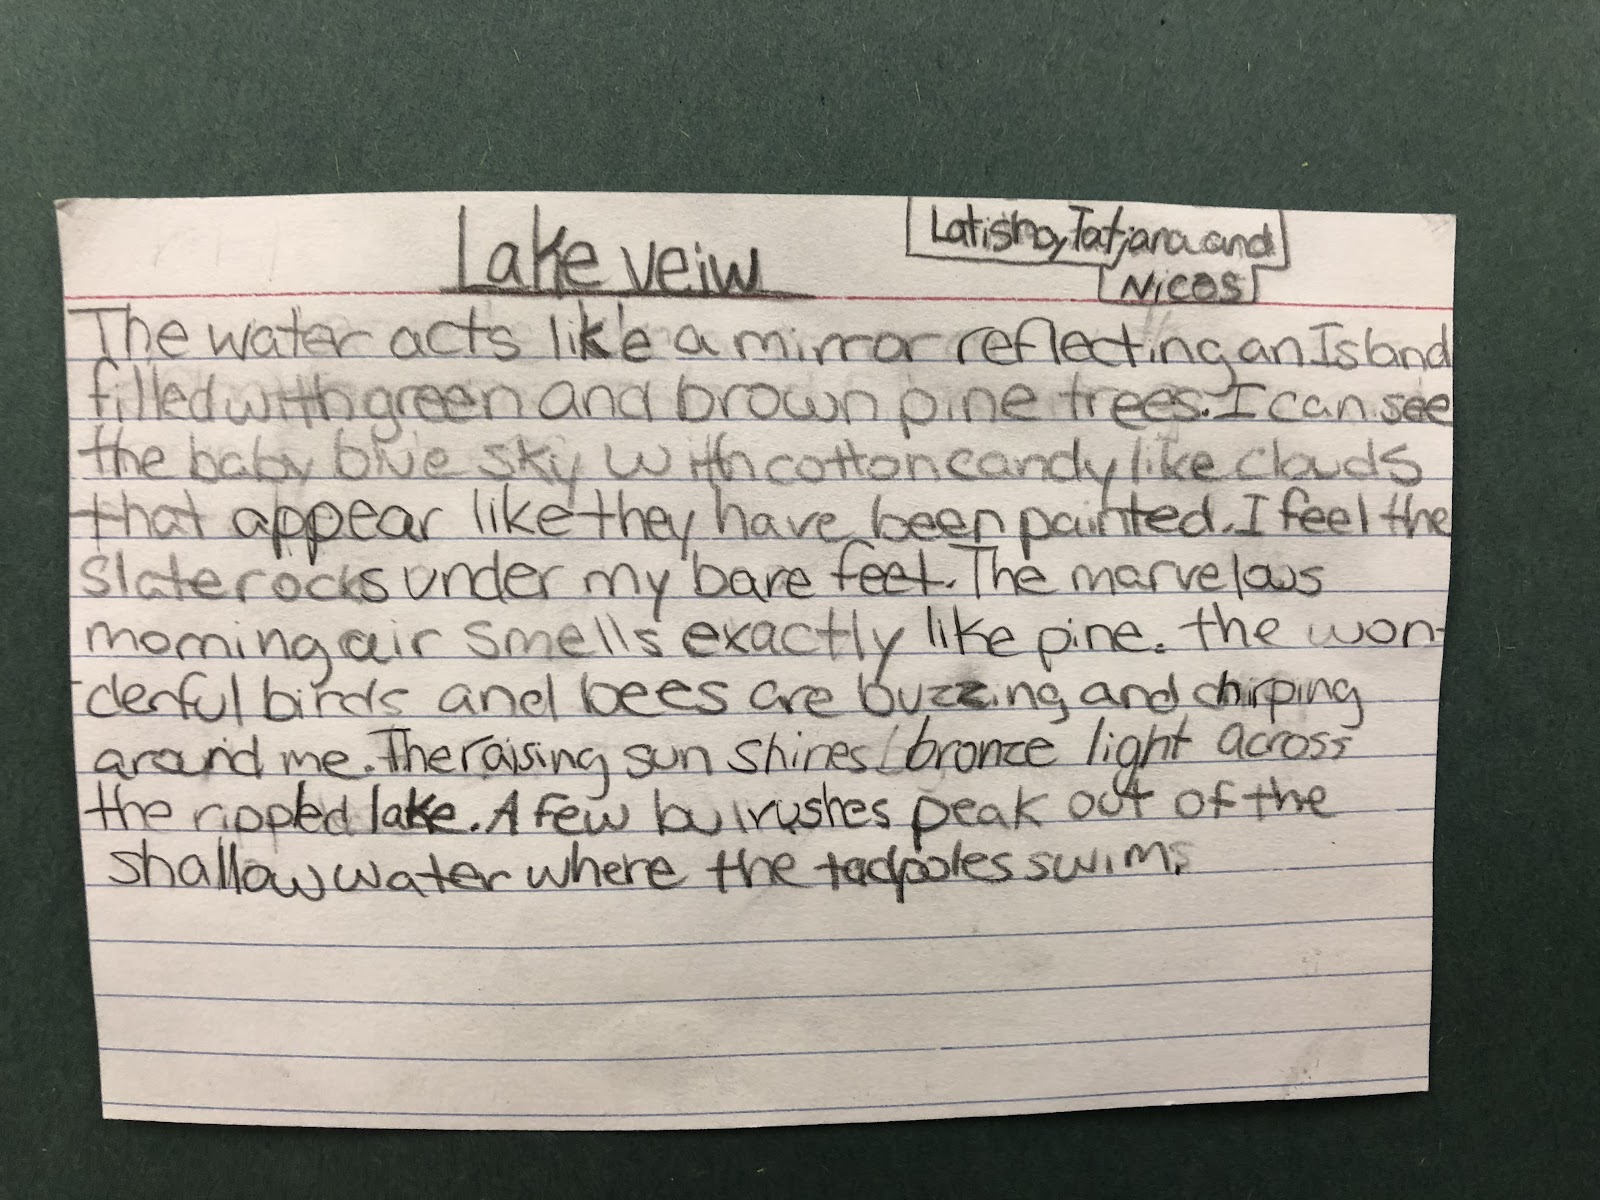 Lake veiw
Latisha, Tatjana and
Nicos
The water acts like a mirror reflecting an Island
filled with green and brown pine trees. I can see
the baby blue sky with cotton candy like clouds
that appear like they have been painted. I feel the
slate rocks under my bare feet. The marvelous
morning air smells exactly like pine. the won-
derful birds and bees are buzzing and chirping
around me. The raising sun shines bronze light across
the rippled lake. A few bulrushes peak out of the
shallow water where the tadpoles swim.